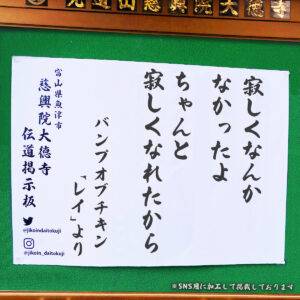 寂しくなんか
なかったよ
ちゃんと
寂しくなれたから
バンプオブチキン
「レイ」より
富山県魚津市
慈興院大徳寺
伝道掲示板
@jikoindaitokuji
@jikoin_daitokuji
※SNS用に加工して掲載しております